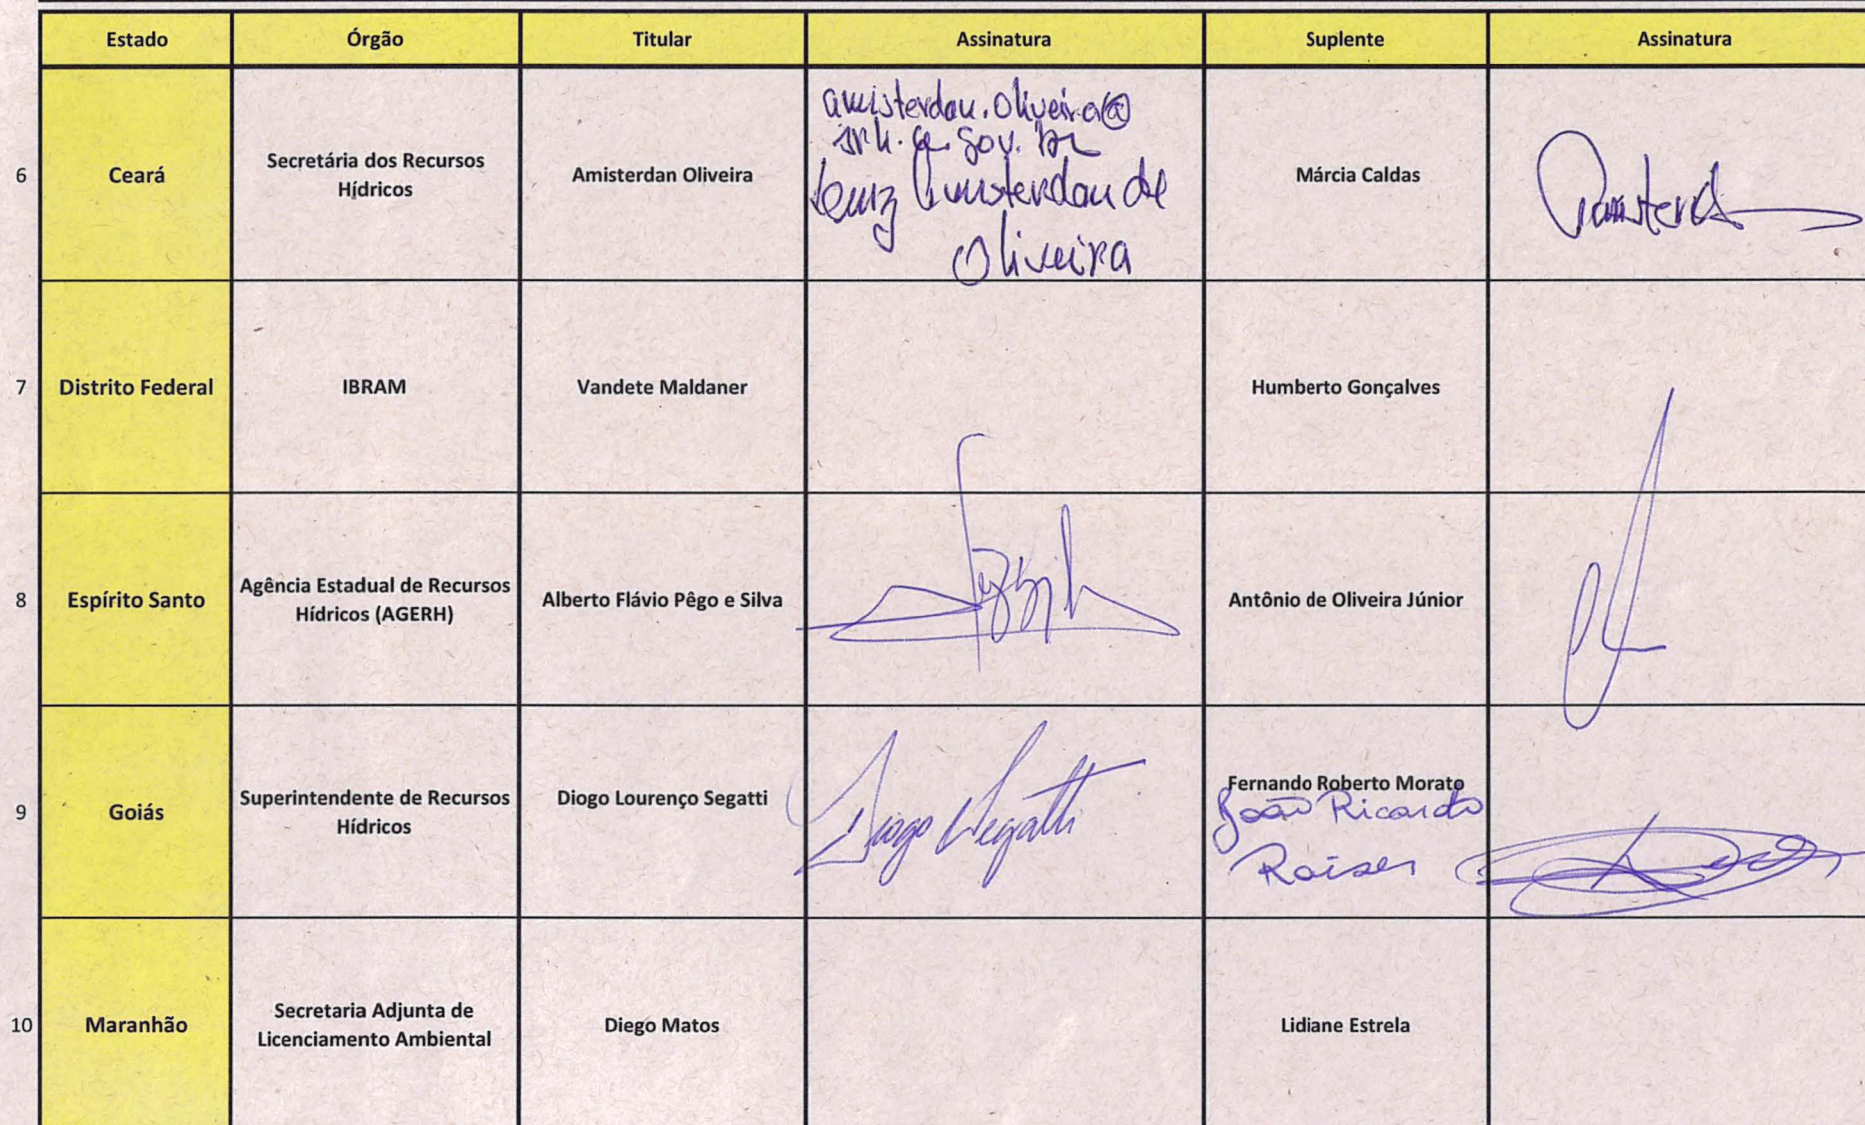 Estado Órgão Titular Assinatura Suplente Assinatura
6 Ceará Secretária dos Recursos Hídricos Amisterdan Oliveira
amisterdan.oliveira@
srh.ce.gov.br
Luiz Amisterdan de
Oliveira
Márcia Caldas
7 Distrito Federal IBRAM Vandete Maldaner Humberto Gonçalves
8 Espírito Santo Agência Estadual de Recursos
Hídricos (AGERH) Alberto Flávio Pêgo e Silva Antônio de Oliveira Júnior
9 Goiás Superintendente de Recursos
Hídricos Diogo Lourenço Segatti Diogo Segatti Fernando Roberto Morato
João Ricardo
Raiser
10 Maranhão Secretaria Adjunta de
Licenciamento Ambiental Diego Matos Lidiane Estrela